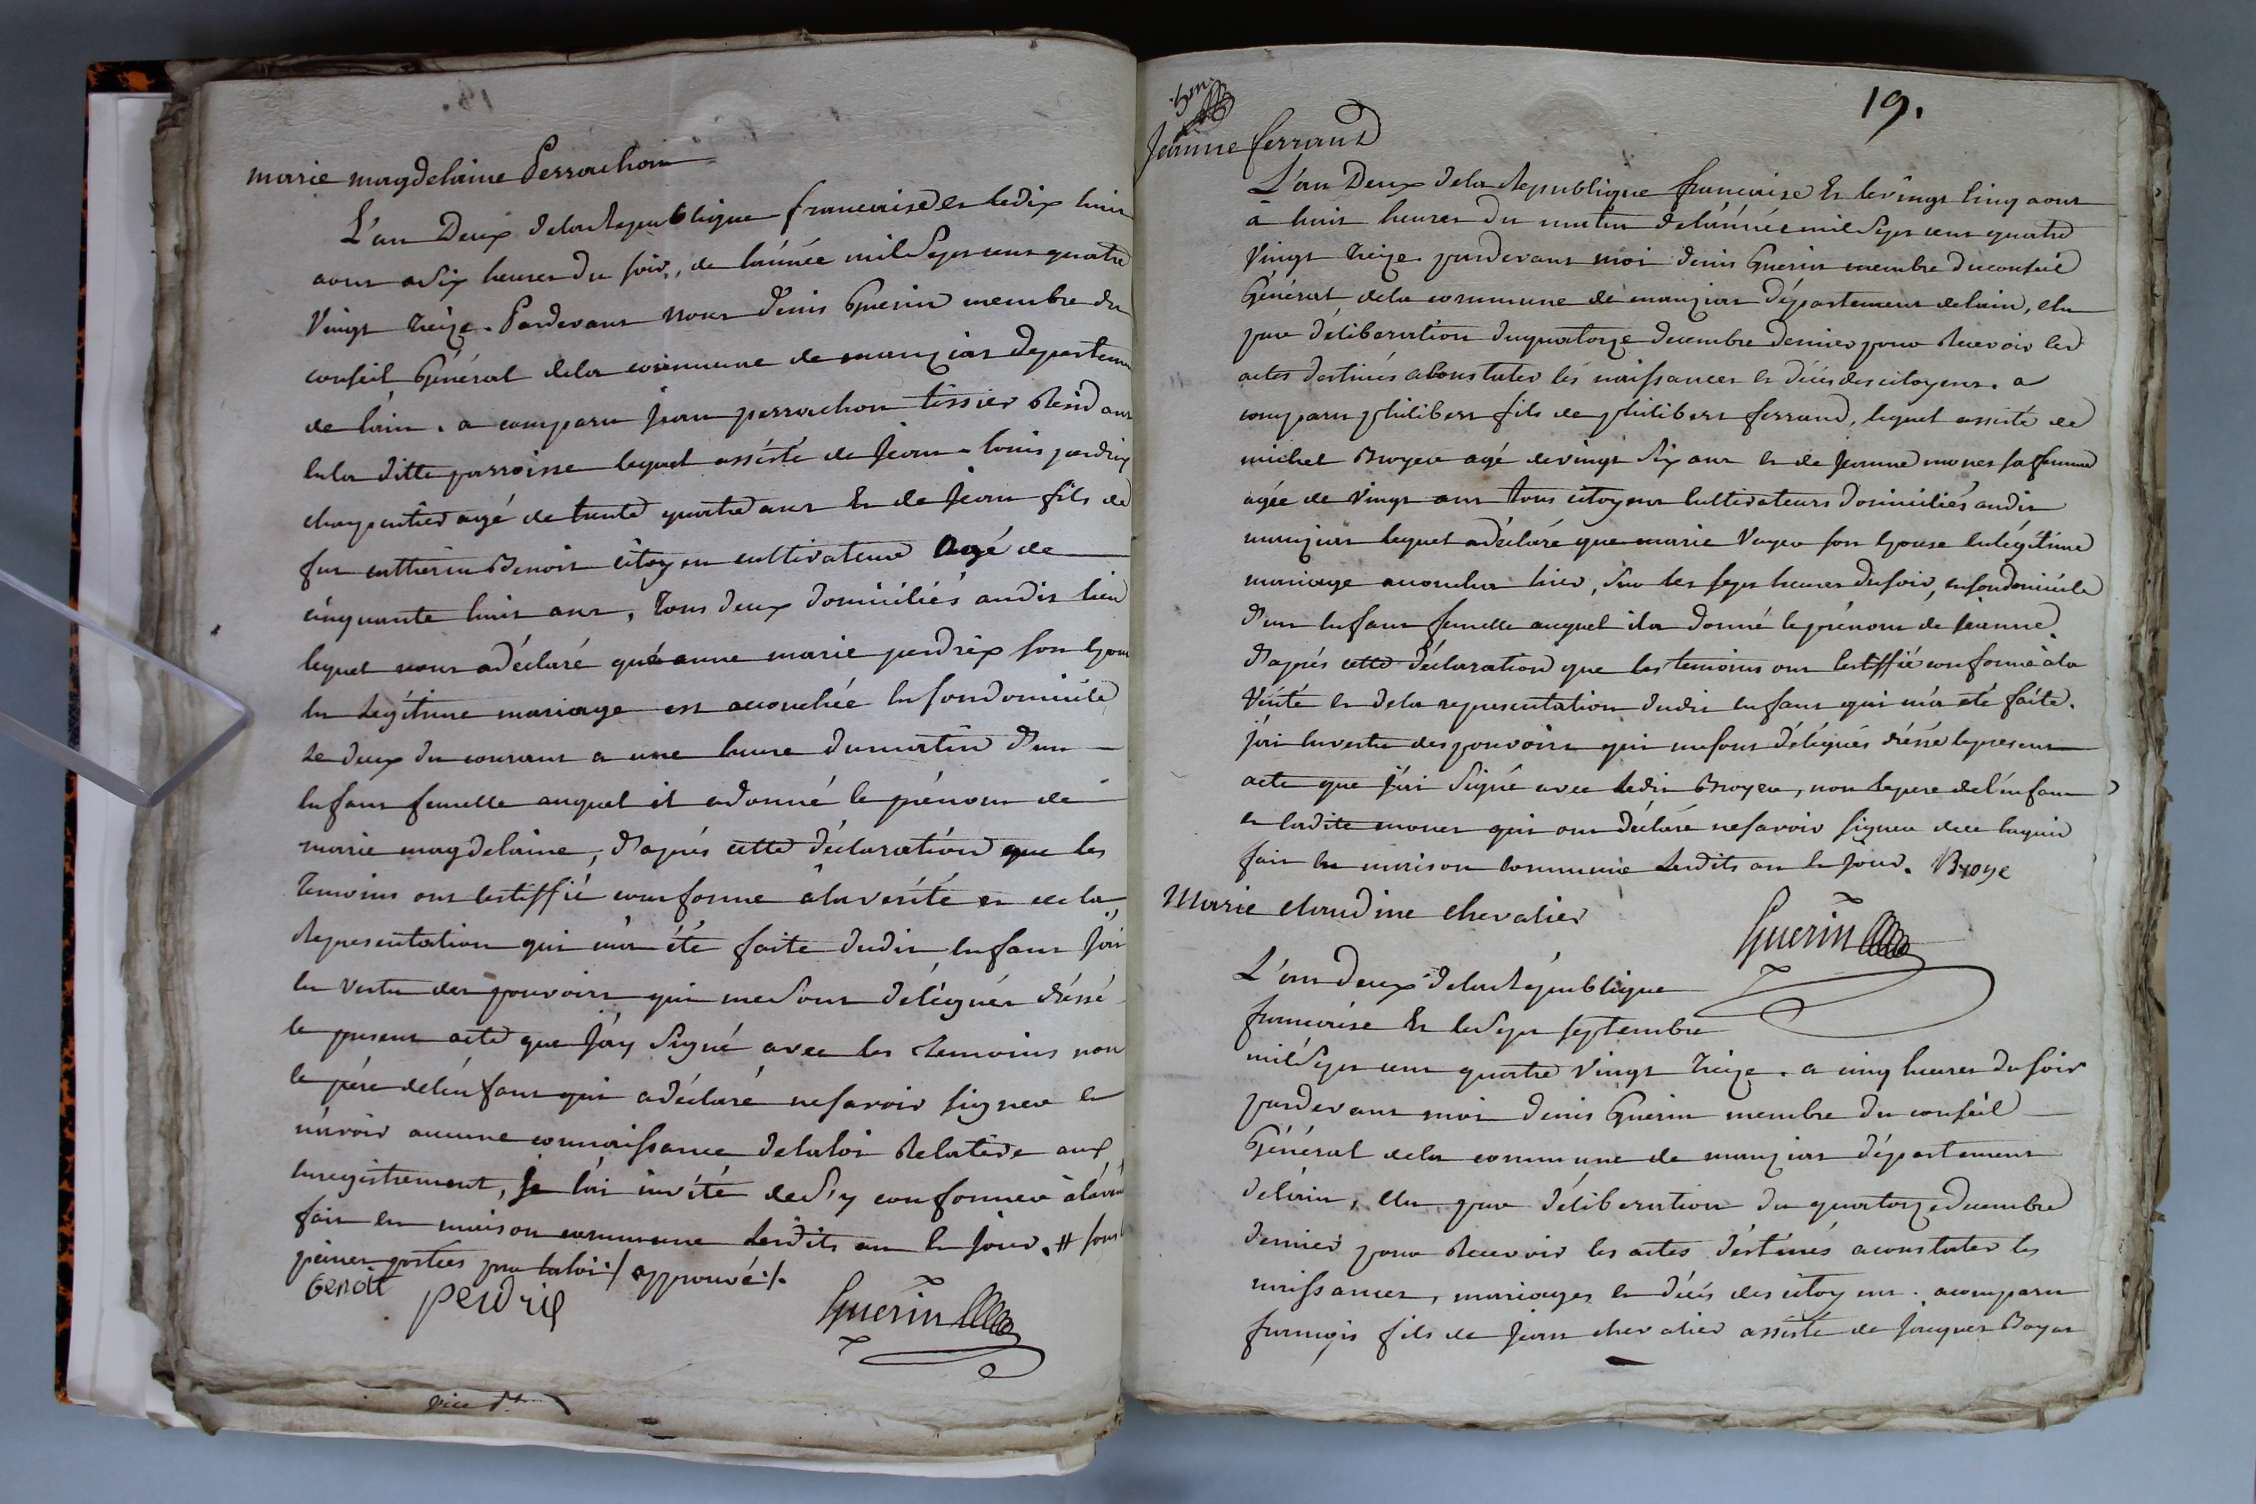 marie magdelaine Perrachon
L'an Deux de la Republique francaise et le dix huit
aout a six heures du soir, de l'année mil sept cent quatre
Vingt treize. Pardevant nous denis Guerin membre du
conseil Général de la commune de manziat departemen
de l'ain. a comparu jean perrachon tissier Resid ant
en la ditte parroisse lequel assisté de Jean-louis perdrix
charpentier agé de trente quatre ans Et de Jean fils de
feu cattherin Benoit citoyen cultivateur Agé de
cinquante huit ans, tous deux domiciliés audit lieu
lequel nous a déclaré que anne marie perdrix son Epous
en Légitime mariage est accouchée en son domicile
Le deux du courant a une heure du matin d'un
enfant femelle auquel il a donné le prénom de
marie magdelaine, d'après cette déclaration que les
temoins ont testiffié conforme à la verité et de la
Representation qui m'a été faite dudit enfant J'ai
en vertu des pouvoirs qui me sont délégués dréssé
le present acte que J'ay Signé avec les temoins non
le pére de l'enfant qui a déclaré ne savoir signer et
n'avoir aucune connaissance de la loi Relative aux
enregistrement, je l'ai invité de S'y conformer à l'aveni
fait en maison commune Lesdits an et jour. # sous l
peines portées par la loi:/ approuvé:/.
Benoit
perdrix
Guerin
19.
Jeanne ferrand
L'an Deux de la Republique francaise Et le vingt Cinq aout
a huit heures du matin de l'année mil Sept cent quatre
Vingt treize pardevant moi denis Guerin membre du conseil
Général de la commune de manziat département de l'ain, elu
par déliberation du quatorze decembre dernier pour Recevoir les
actes destinés a Constater les naissances et décés des citoyens. a
comparu philibert fils de philibert ferrand, lequel assisté de
michel Broyer agé de vingt Six ans et de Jeanne monet sa femme
agée de Vingt ans tous citoyens Cultivateurs domiciliés audit
manziat lequel a déclaré que marie Voyer son Epouse en légitime
mariage accoucha hier, Sur les sept heures du soir, en son domicile
d'un Enfant femelle auquel il a donné le prénom de Jeanne.
d'après cette déclaration que les temoins ont testiffié conforme à la
Vérité et de la representation dudit enfant qui m'a été faite.
j'ai En vertu des pouvoirs qui me sont délégués dréssé le present
acte que j'ai Signé avec Ledit Broyer, non le pere de l'enfant
et ladite monet qui ont déclaré ne savoir signer de ce Enquis
fait en maison commune Lesdits an et jour. Broye
Guerin
Marie claudine chevalier
L'an deux de la République
francaise Et le Sept septembre
mil Sept cent quatre Vingt treize. a cinq heures du soir
pardevant moi denis Guerin membre du conseil
Général de la commune de manziat département
de l'ain, Elu par déliberation du quatorze decembre
dernier pour Recevoir les actes déstinés a constater les
naissances, mariages et décés des citoyens. a comparu
francois fils de Jean chevalier assisté de Jacques Boyat